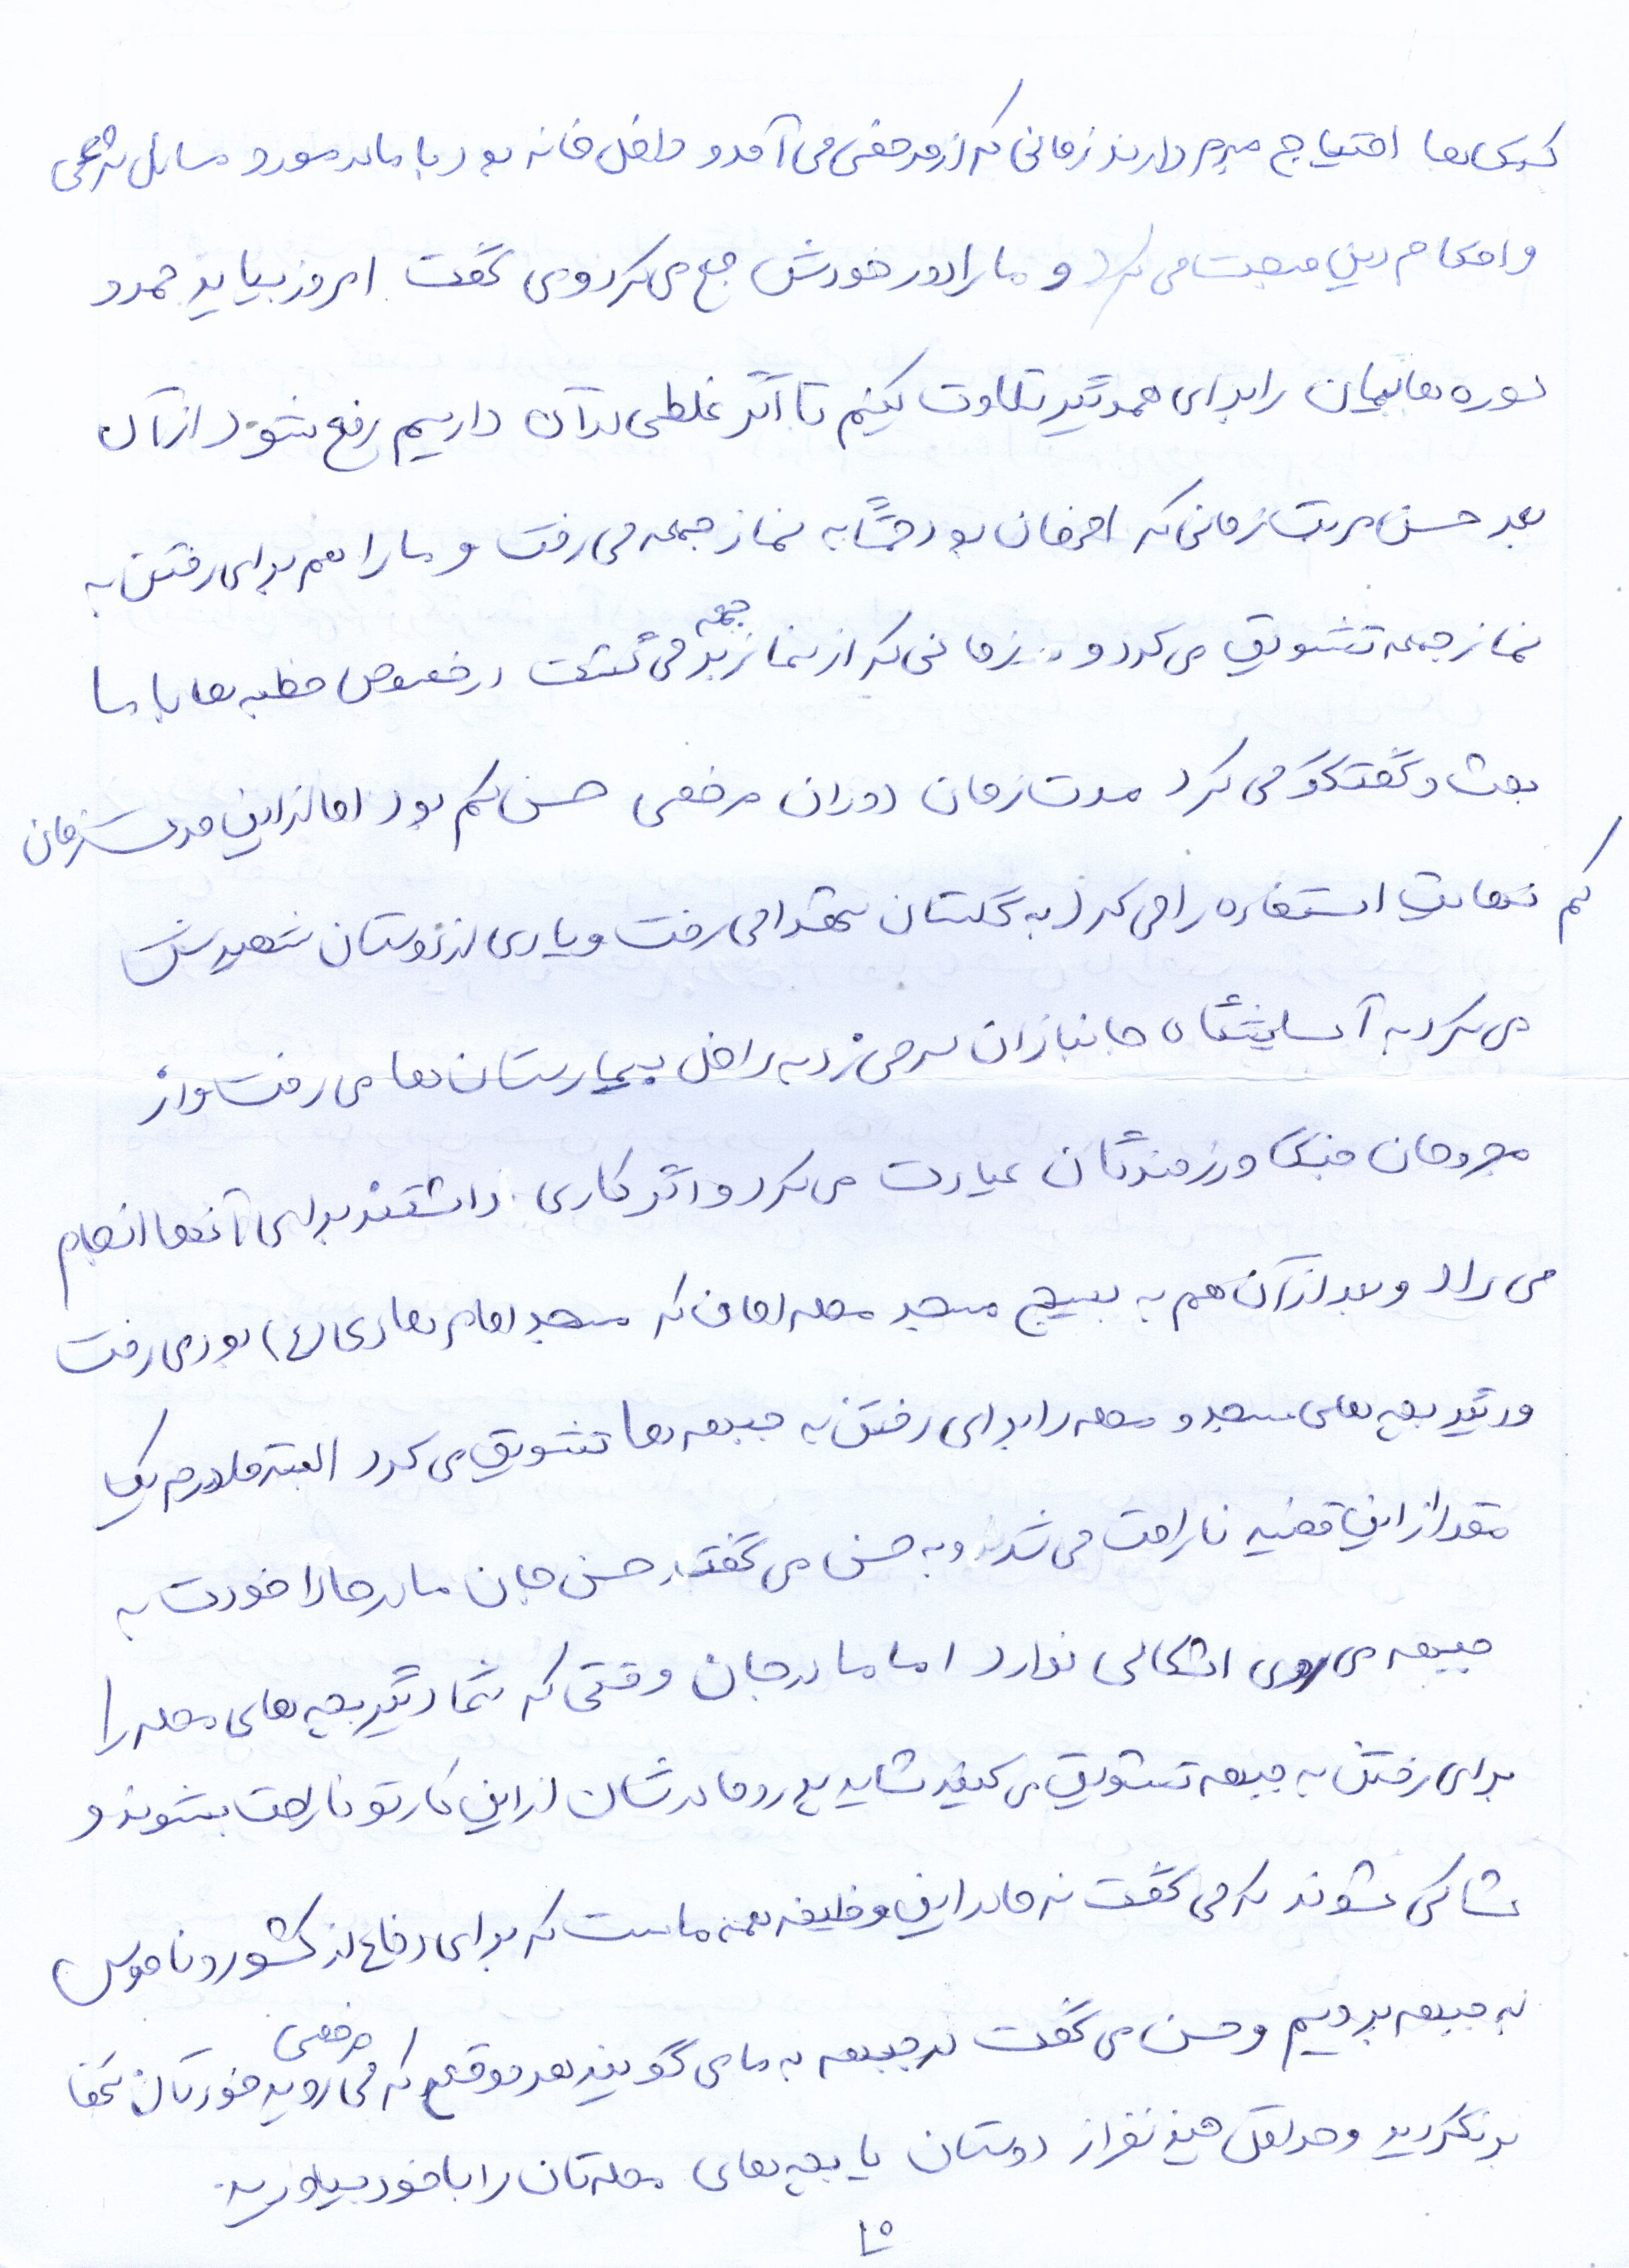 کمک‌ها احتیاج مبرم دارند زمانی که از مرخصی می‌آمد و داخل خانه بود با ما در مورد مسائل شرعی
و احکام دین صحبت می‌کرد و ما را دور خودش جمع می‌کرد و می گفت امروز بیاید حمد و
سوره هایمان را برای همدیگر تلاوت کنیم تا اگر غلطی در آن داریم رفع شود از آن
بعد حسن مدت زمانی که اصفهان بود حتماً به نماز جمعه می رفت و ما را هم برای رفتن به
نماز جمعه تشویق می کرد و زمانی که از نماز جمعه بر می گشت در خصوص خطبه ها با ما
بحث و گفتگو می کرد مدت زمان دوران مرخصی حسن کم بود اما از این مدت زمان
کم نهایت استفاده را می کرد به گلستان شهدا می رفت و یادی از دوستان شهیدش
می کرد به آسایشگاه جانبازان سر می زد به داخل بیمارستان ها می رفت و از
مجروحان جنگ و رزمندگان عیادت می کرد و اگر کاری داشتند برای آنها انجام
می داد و بعد از آن هم به بسیج مسجد محله امان که مسجد امام هادی (ع) بود می رفت
و دیگر بچه های مسجد و محله را برای رفتن به جبهه ها تشویق می کرد البته مادرم یک
مقدار از این قضیه ناراحت می شد و به حسن می گفت حسن جان مادر حالا خودت به
جبهه می روی اشکالی ندارد اما مادر جان وقتی که شما دیگر بچه های محله را
برای رفتن به جبهه تشویق می کنید شاید پدر و مادرشان از این کار تو ناراحت بشوند و
شاکی شوند که می گفت نه مادر این وظیفه همه ماست که برای دفاع از کشور و ناموس
به جبهه برویم و حسن می گفت در جبهه به ما می گویند هر موقع که مرخصی می روید خودتان تنها
برنگردید و حداقل چند نفر از دوستان یا بچه های محله تان را با خود بیاورید.